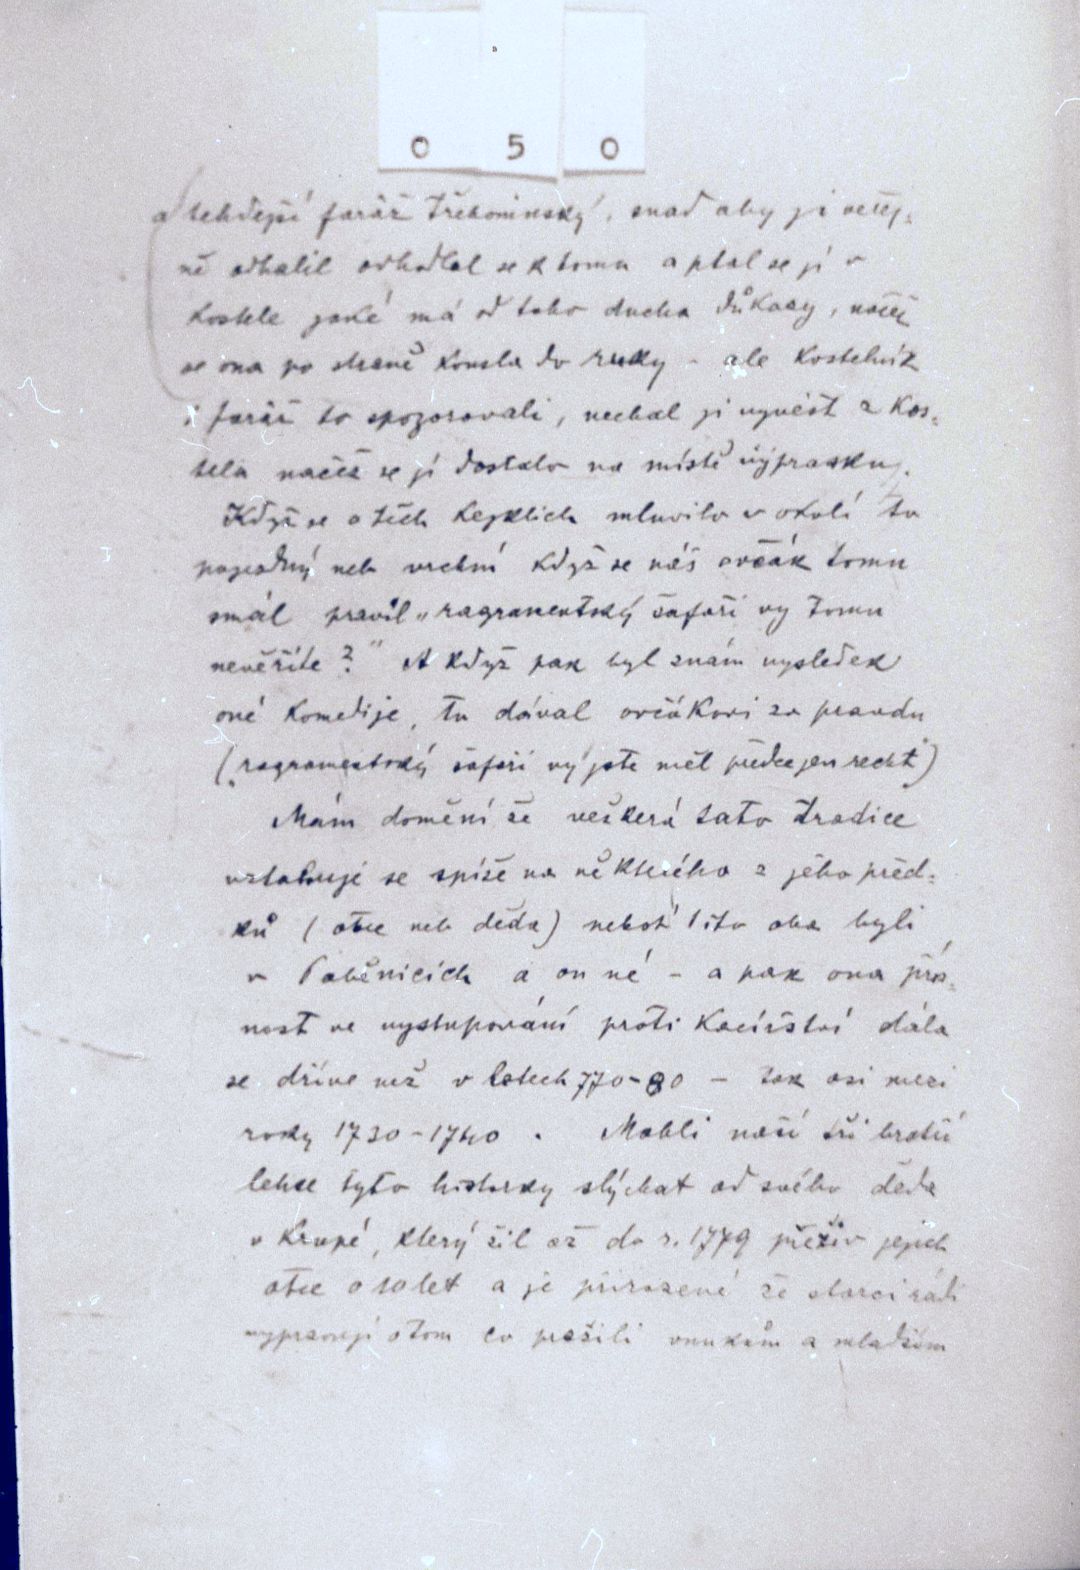 0 5 0
a tehdejší farář Třebonínský, snad aby ji veřej-
ně odhalil odhodlal se k tomu a ptal se jí v
kostele jaké má od toho ducha důkazy, načež
se ona po straně kousla do ruky – ale kostelník
i farář to zpozorovali, nechal ji vyvést z kos-
tela načež se jí dostalo na místě výprasku.
Když se o těch kejklích mluvilo v okolí tu
pojezdný neb vrchní když se náš ovčák tomu
smál pravil „ragramentský šafáři vy tomu
nevěříte?" A když pak byl znám vysledek
oné komedije, tu dával ovčákovi za pravdu
(„ragramentský šafáři vý jste měl předce jen recht")
Mám domění že veškerá tato tradice
vztahuje se spíše na některého z jeho před-
ků (otce neb děda) neboť tito oba byli
v Paběnicích a on né – a pak ona přís-
nost ve vystupování proti kacířství dála
se dříve než v letech 770–80 – tak asi mezi
roky 1730–1740 . Mohli naší tři bratří
lehce tyto historky slýchat od svého děda
v Krupé, který žil až do r. 1779 přeživ jejich
otce o 10 let a je přirozené že starci rádi
vypravují o tom co prožili vnukům a mladším